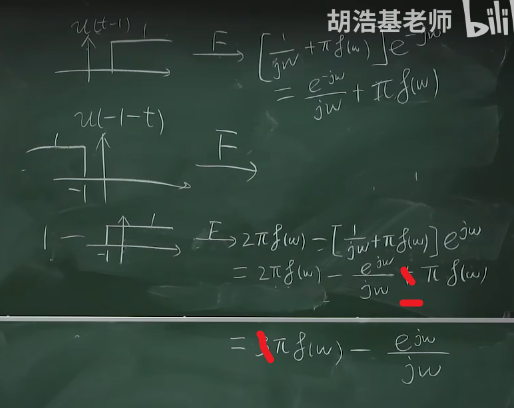 胡浩基老师 bili
u(t-1)
1 F [1/jw + πδ(w)] e^-jw
= e^-jw/jw + πδ(w)
u(-1-t)
1 F
-1
1 - 1 F 2πδ(w) = [1/jw + πδ(w)] e^jw
-1 = 2πδ(w) - e^jw/jw - πδ(w)
= πδ(w) - e^jw/jw